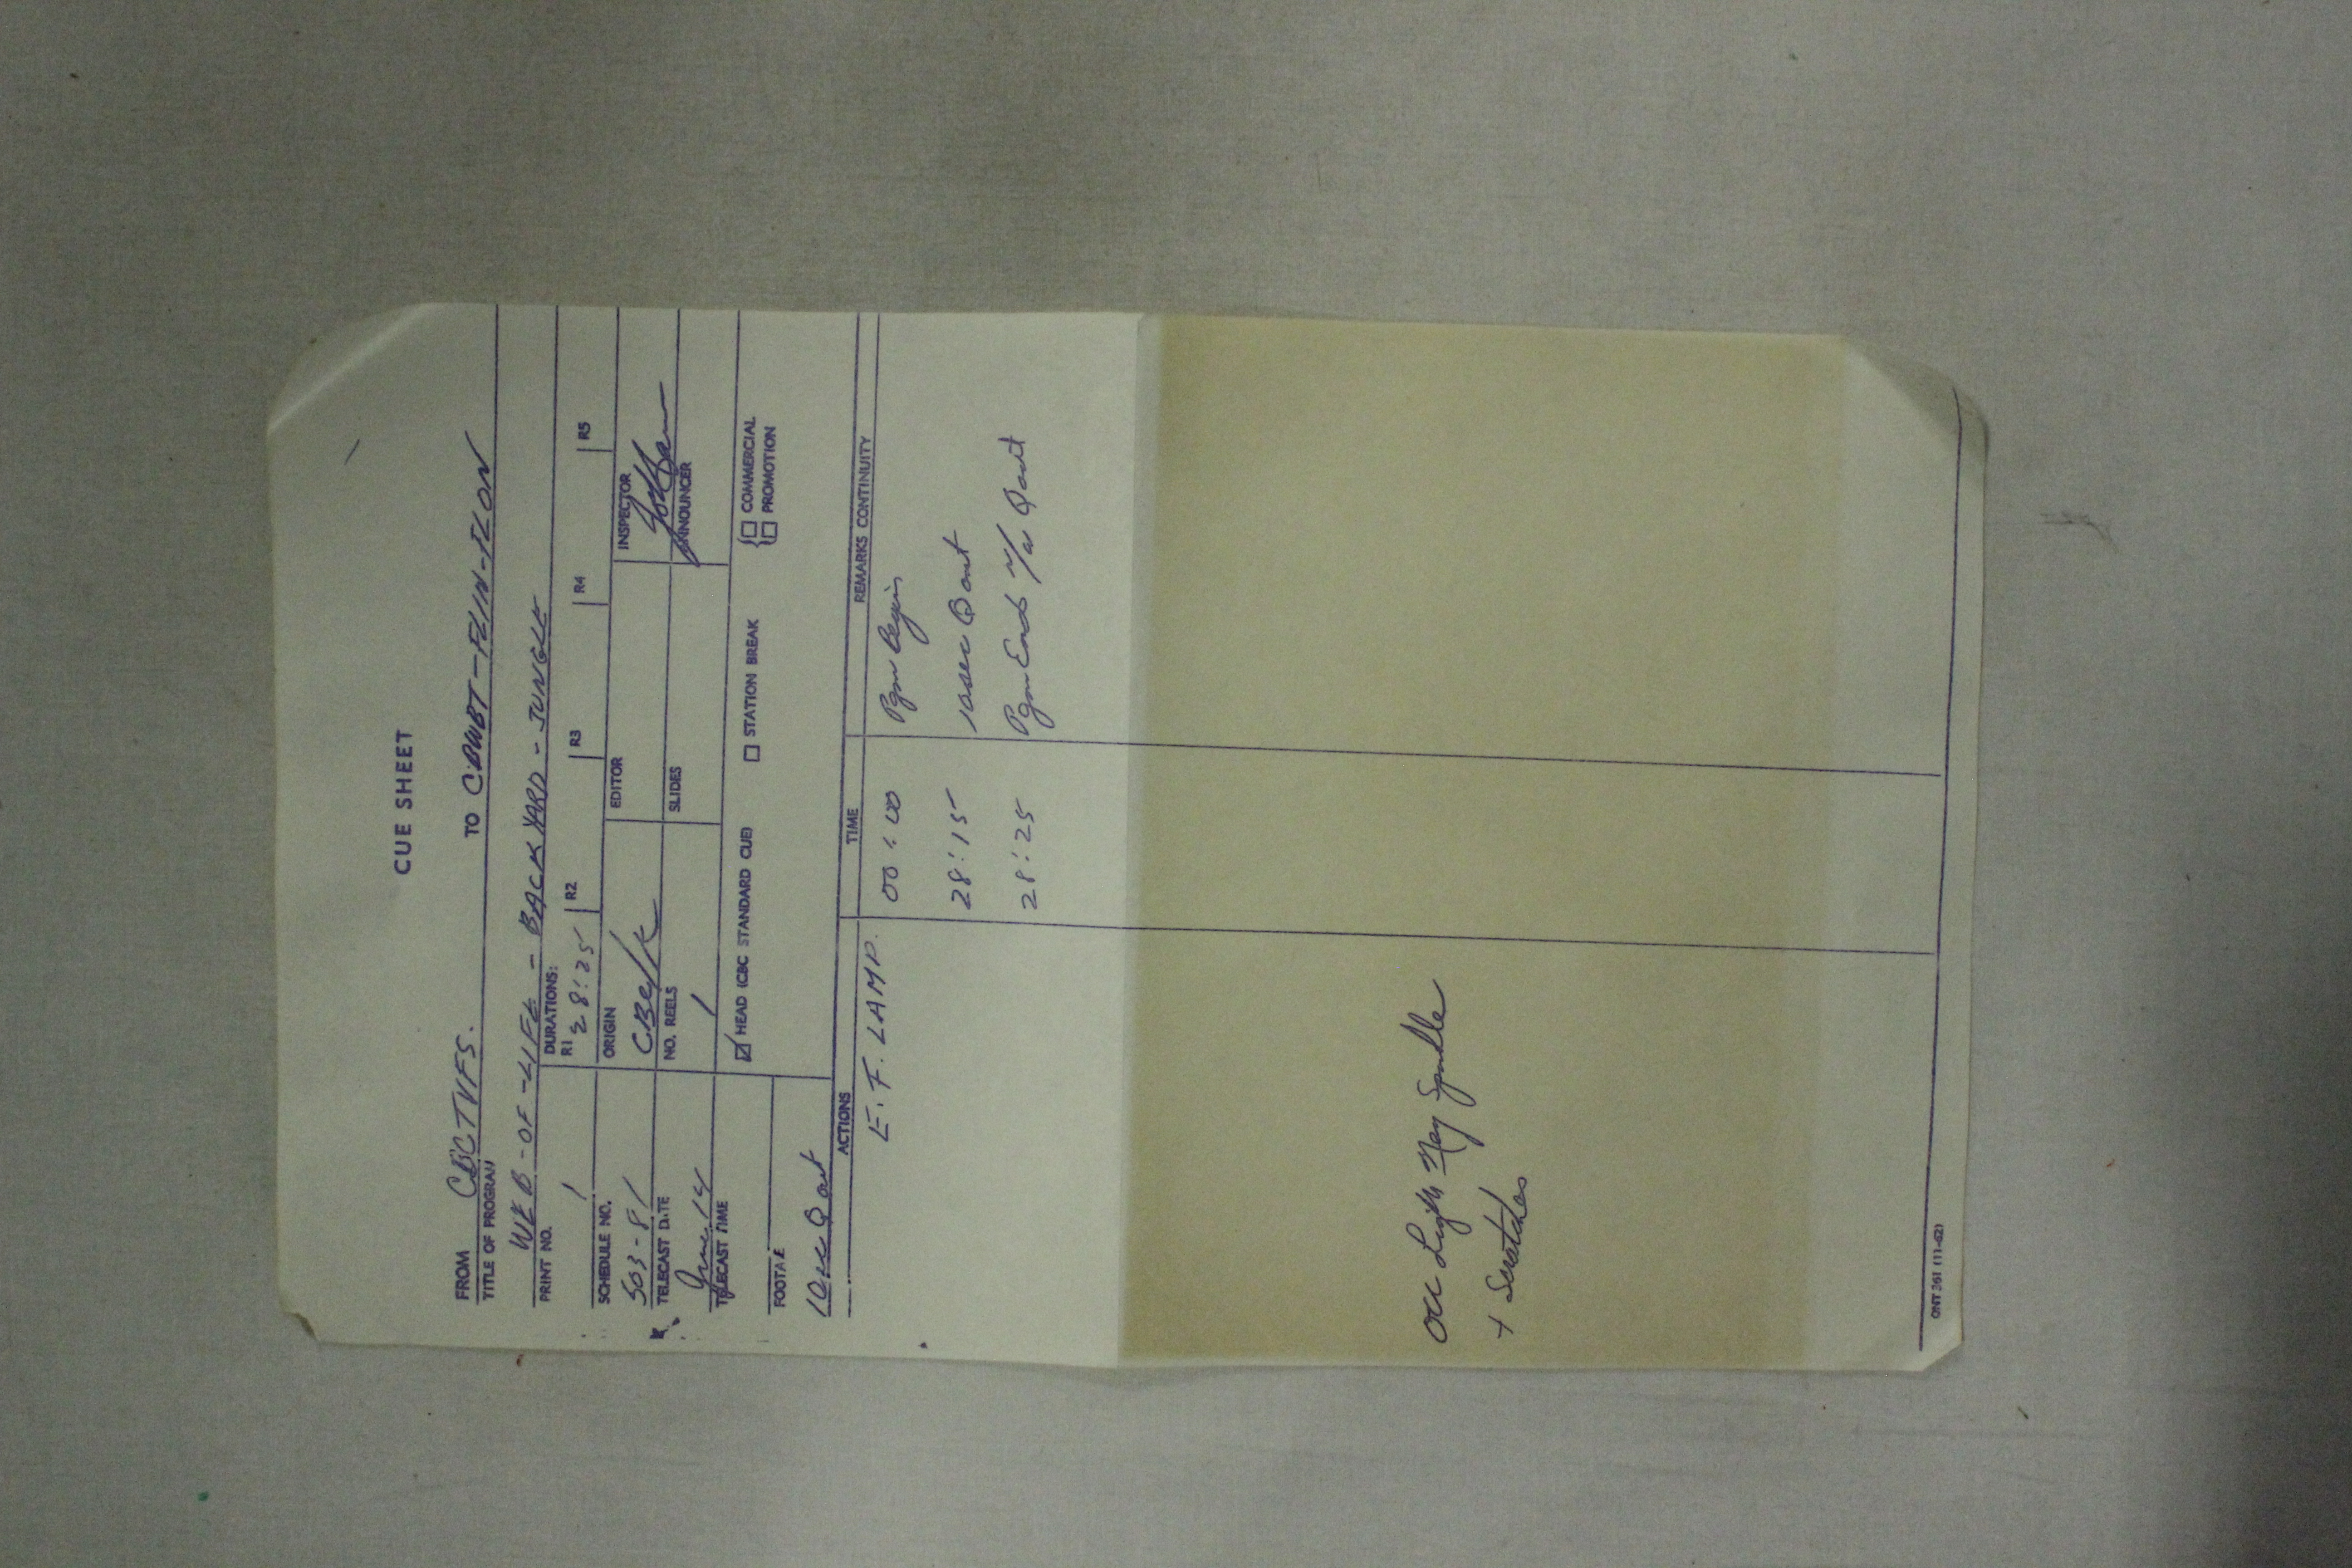 CUE SHEET
FROM CBCTVFS. TO CBWBT-FLIN-FLON
TITLE OF PROGRAM
WEB-OF-LIFE - BACKYARD-JUNGLE
PRINT NO. 1
DURATIONS:
R1 28:25 R2 R3 R4 R5
SCHEDULE NO. ORIGIN EDITOR INSPECTOR
503-81 CBC
TELECAST DATE NO. REELS SLIDES ANNOUNCER
June 14 1
TELECAST TIME
HEAD (CBC STANDARD CUE) STATION BREAK COMMERCIAL
PROMOTION
FOOTAGE
10sec Q out
ACTIONS TIME REMARKS CONTINUITY
E.F. LAMP. 00:00 Pgm Begin
28:15 10sec Q out
28:25 Pgm Ends Q out
occ Light Neg Sparkle
+ Scratches
ONT 361 (11-62)